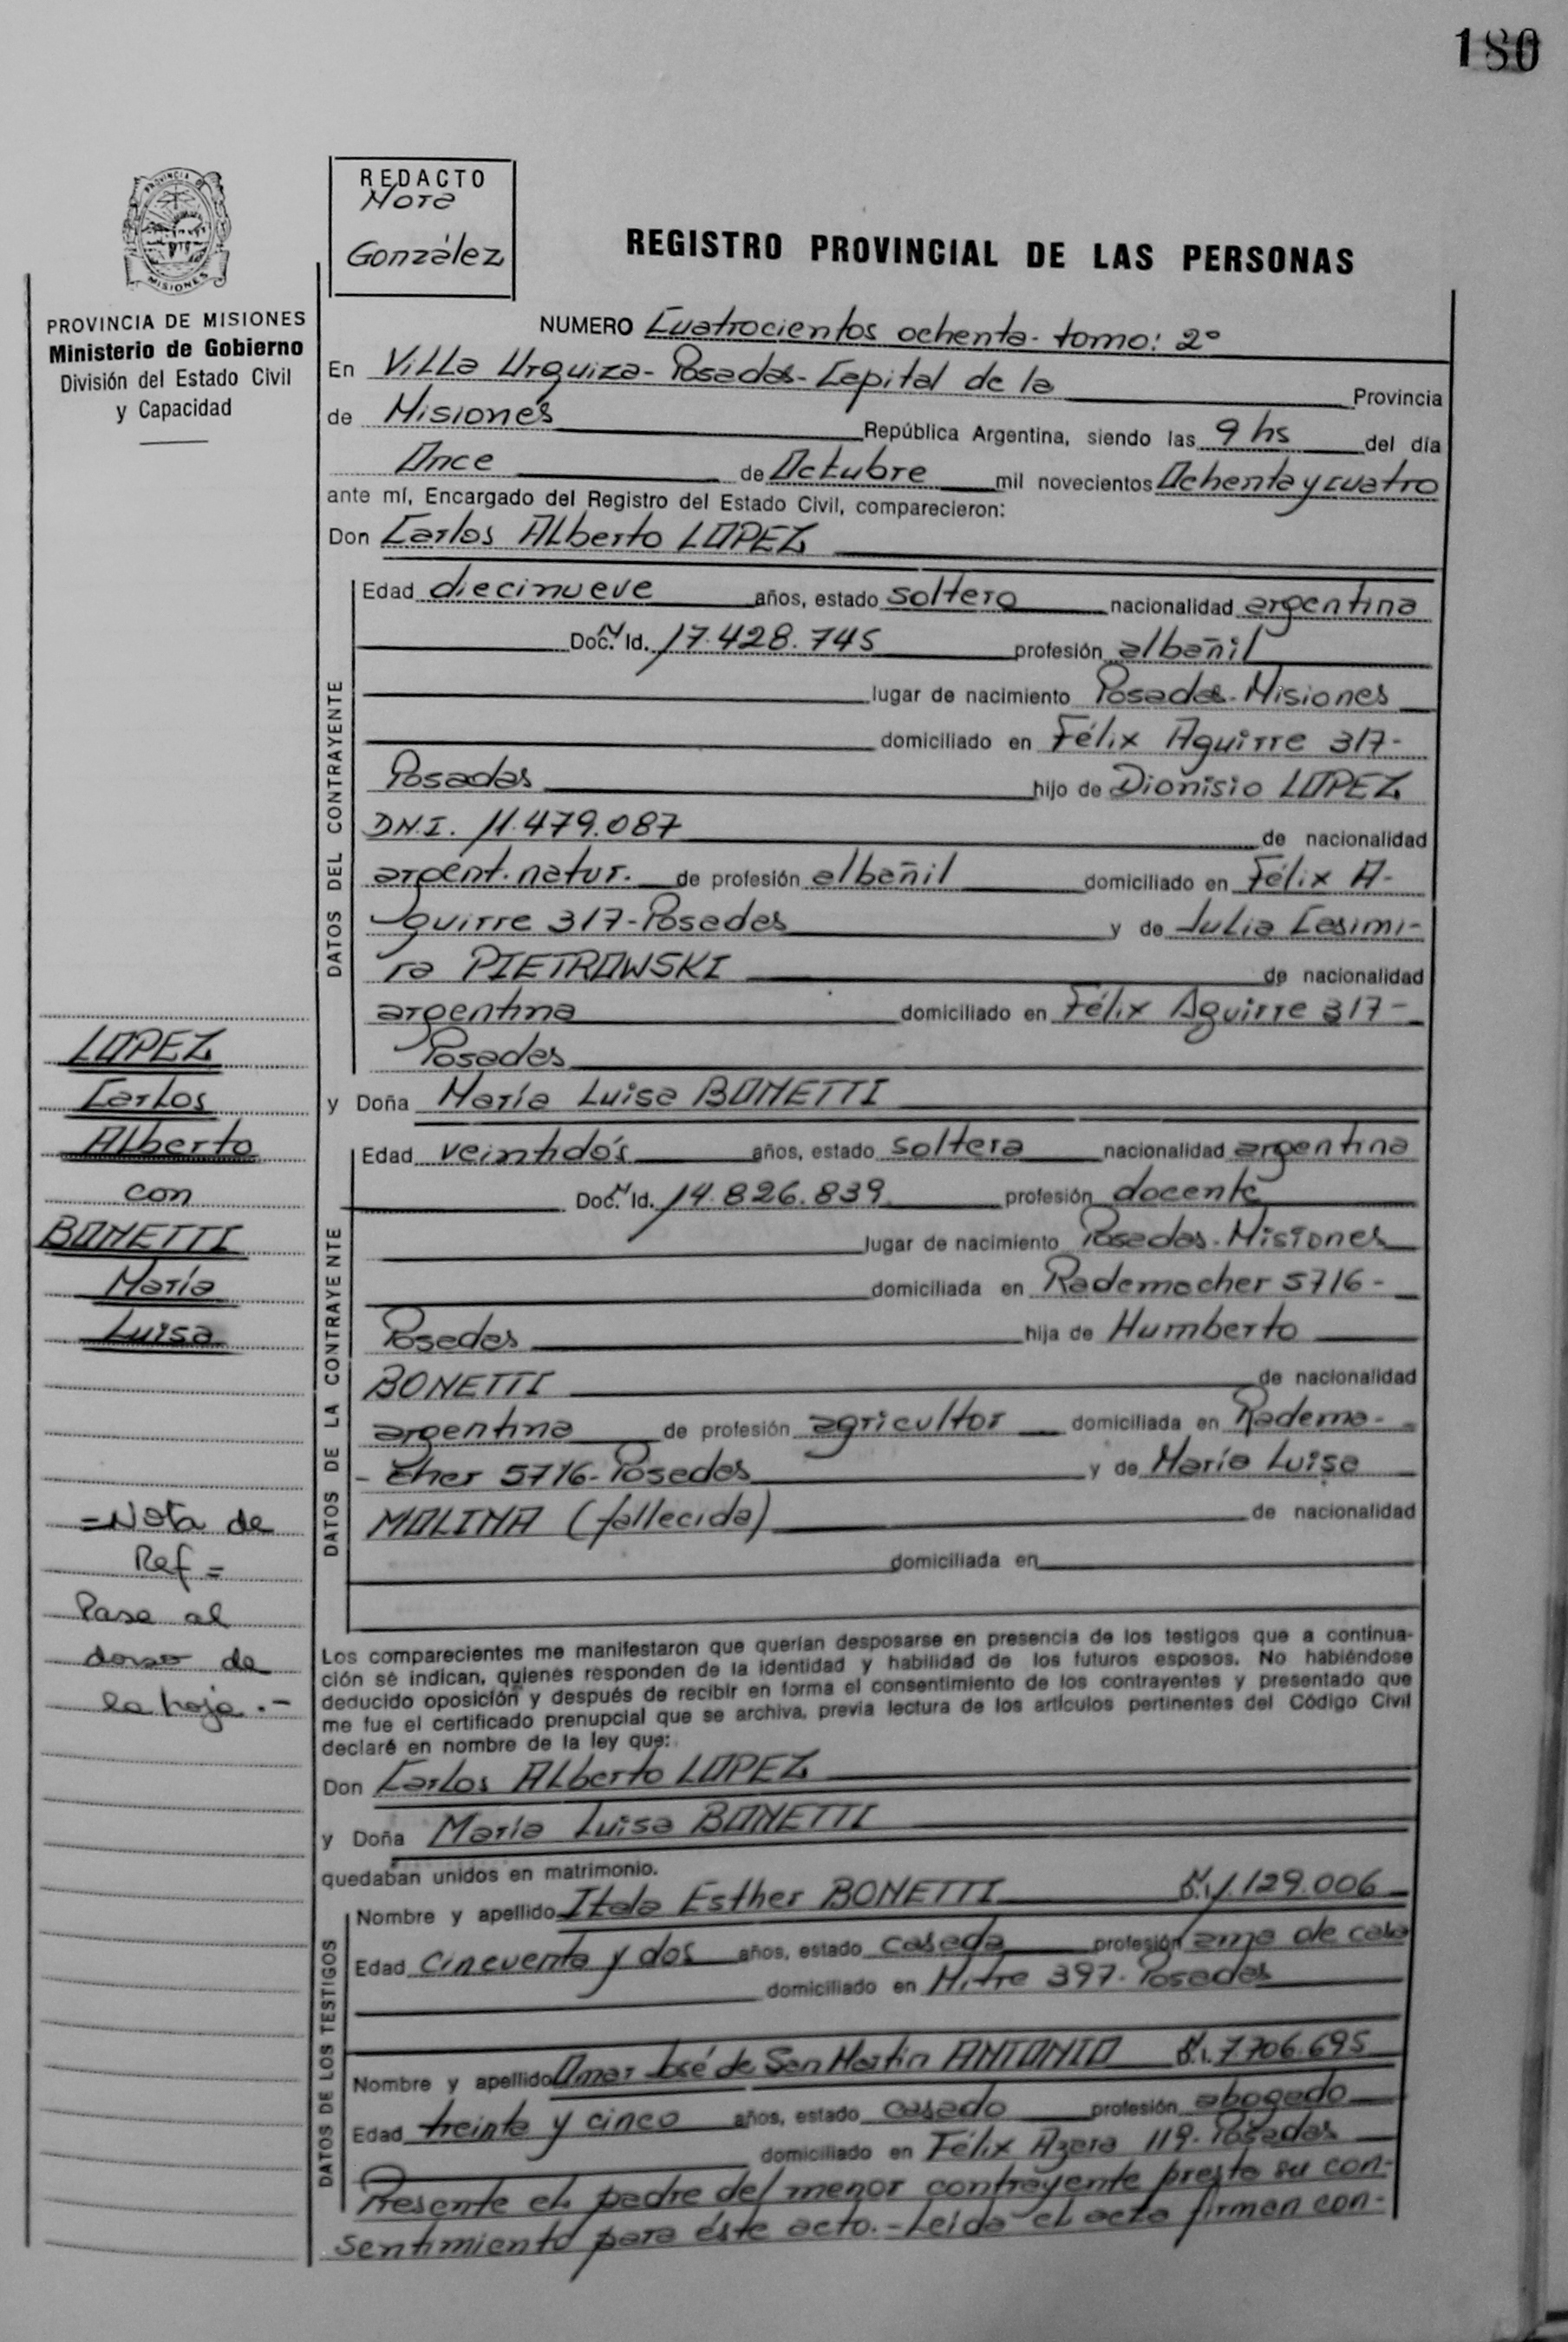 180
PROVINCIA DE
MISIONES
PROVINCIA DE MISIONES
Ministerio de Gobierno
División del Estado Civil
y Capacidad
REDACTO
Mora
González
REGISTRO PROVINCIAL DE LAS PERSONAS
NUMERO Cuatrocientos ochenta- tomo: 2°
En Villa Urquiza- Posadas- Capital de la Provincia
de Misiones República Argentina, siendo las 9 hs del día
Once de Octubre mil novecientos Ochenta y cuatro
ante mí, Encargado del Registro del Estado Civil, comparecieron:
Don Carlos Alberto LOPEZ
DATOS DEL CONTRAYENTE
Edad diecinueve años, estado soltero nacionalidad argentina
Doc. N Id. 17.428.745 profesión albañil
lugar de nacimiento Posadas- Misiones
domiciliado en Félix Aguirre 317-
Posadas hijo de Dionisio LOPEZ
D.N.I. 11.479.087 de nacionalidad
argent. natur. de profesión albañil domiciliado en Félix A-
guirre 317- Posadas y de Julia Casimi-
ra PIETROWSKI de nacionalidad
argentina domiciliado en Félix Aguirre 317-
Posadas
y Doña María Luisa BONETTI
DATOS DE LA CONTRAYENTE
Edad veintidós años, estado soltera nacionalidad argentina
Doc. N Id. 14.826.839 profesión docente
lugar de nacimiento Posadas- Misiones
domiciliada en Rademacher 5716-
Posadas hija de Humberto
BONETTI de nacionalidad
argentina de profesión agricultor domiciliada en Radema-
- cher 5716- Posadas y de María Luisa
MOLINA (fallecida) de nacionalidad
domiciliada en
LOPEZ
Carlos
Alberto
con
BONETTI
María
Luisa
=Nota de
Ref=
Pasa al
dorso de
la hoja.-
Los comparecientes me manifestaron que querían desposarse en presencia de los testigos que a continua-
ción se indican, quienes responden de la identidad y habilidad de los futuros esposos. No habiéndose
deducido oposición y después de recibir en forma el consentimiento de los contrayentes y presentado que
me fue el certificado prenupcial que se archiva, previa lectura de los artículos pertinentes del Código Civil
declaré en nombre de la ley que:
Don Carlos Alberto LOPEZ
y Doña María Luisa BONETTI
quedaban unidos en matrimonio.
DATOS DE LOS TESTIGOS
Nombre y apellido Itala Esther BONETTI 1.129.006
Edad cincuenta y dos años, estado casada profesión ama de casa
domiciliado en Mitre 397- Posadas
Nombre y apellido Omar José de San Martin ANTONIO D.N.I. 7.706.695
Edad treinta y cinco años, estado casado profesión abogado
domiciliado en Félix Azara 119- Posadas
Presente el padre del menor contrayente presta su con-
sentimiento para éste acto.- Leída el acta firman con-